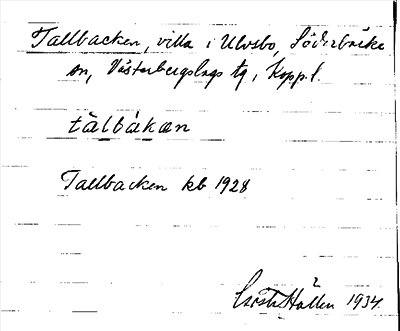 Tallbacken, villa i Ulvsbo, Söderbärke
sn, Västerbergslags tg, Kopp. l.
tàlbàkæn
Tallbacken kb 1928
Hallén 1934.